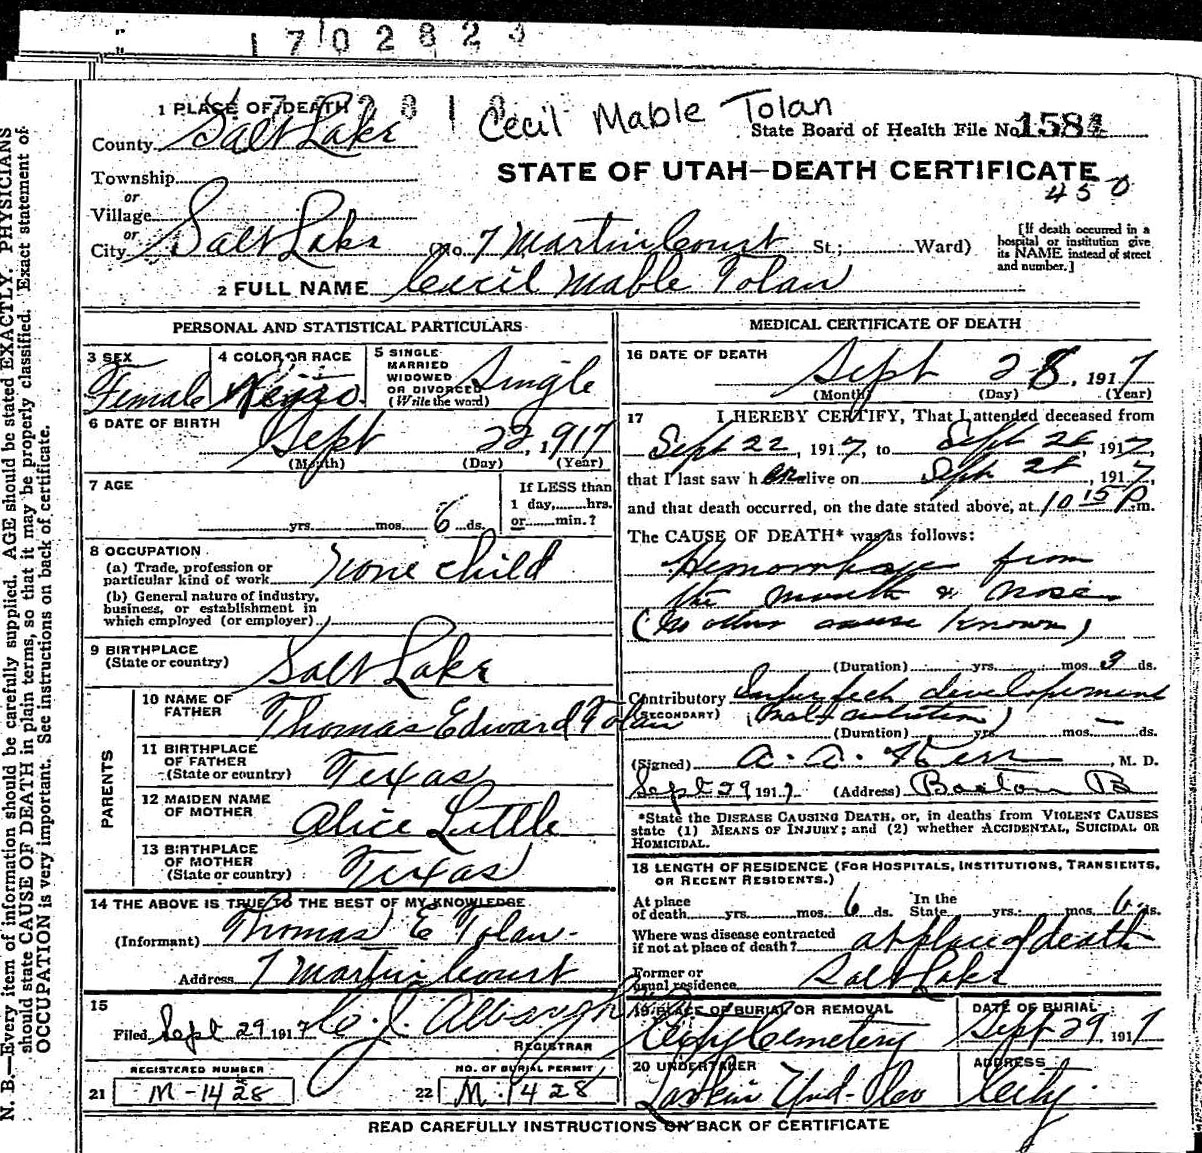 1702823
1 PLACE OF DEATH
Cecil Mable Tolan
County Salt Lake
State Board of Health File No. 1584
Township
STATE OF UTAH—DEATH CERTIFICATE
450
or
Village
or
City Salt Lake No. 7 Martin Court St.; Ward)
[If death occurred in a hospital or institution give its NAME instead of street and number.]
2 FULL NAME Cecil Mable Tolan
PERSONAL AND STATISTICAL PARTICULARS
3 SEX Female
4 COLOR OR RACE Negro
5 SINGLE MARRIED WIDOWED OR DIVORCED (Write the word) Single
6 DATE OF BIRTH Sept 22, 1917
(Month) (Day) (Year)
7 AGE yrs. mos. 6 ds.
If LESS than 1 day, hrs. or min.?
8 OCCUPATION
(a) Trade, profession or particular kind of work none child
(b) General nature of industry, business, or establishment in which employed (or employer)
9 BIRTHPLACE (State or country) Salt Lake
PARENTS
10 NAME OF FATHER Thomas Edward Tolan
11 BIRTHPLACE OF FATHER (State or country) Texas
12 MAIDEN NAME OF MOTHER Alice Little
13 BIRTHPLACE OF MOTHER (State or country) Texas
14 THE ABOVE IS TRUE TO THE BEST OF MY KNOWLEDGE
(Informant) Thomas E Tolan
Address 7 Martin Court
15
Filed Sept 29 1917
REGISTRAR
REGISTERED NUMBER
21 M-1428
NO. OF BURIAL PERMIT
22 M-1428
MEDICAL CERTIFICATE OF DEATH
16 DATE OF DEATH Sept 28, 1917
(Month) (Day) (Year)
17 I HEREBY CERTIFY, That I attended deceased from
Sept 22, 1917, to Sept, 1917,
that I last saw her alive on Sept, 1917,
and that death occurred, on the date stated above, at 10 15 P.m.
The CAUSE OF DEATH* was as follows:
Hemorrhage from
the mouth & nose
(No other cause known)
(Duration) yrs. mos. 3 ds.
Contributory development
(SECONDARY) (Malnutrition)
(Duration) yrs. mos. — ds.
(Signed) A. A. Kerr, M. D.
Sept 29 1917 (Address) Boston B
*State the DISEASE CAUSING DEATH, or, in deaths from VIOLENT CAUSES state (1) MEANS OF INJURY; and (2) whether ACCIDENTAL, SUICIDAL OR HOMICIDAL.
18 LENGTH OF RESIDENCE (FOR HOSPITALS, INSTITUTIONS, TRANSIENTS, OR RECENT RESIDENTS.)
At place of death yrs. mos. 6 ds. In the State yrs. mos. 6 ds.
Where was disease contracted if not at place of death? at place of death
Former or usual residence Salt Lake
19 PLACE OF BURIAL OR REMOVAL City Cemetery
DATE OF BURIAL Sept 29 1917
20 UNDERTAKER Larkin Und.
ADDRESS City.
READ CAREFULLY INSTRUCTIONS ON BACK OF CERTIFICATE
N. B.—Every item of information should be carefully supplied. AGE should be stated EXACTLY. PHYSICIANS
should state CAUSE OF DEATH in plain terms, so that it may be properly classified. Exact statement of
OCCUPATION is very important. See instructions on back of certificate.